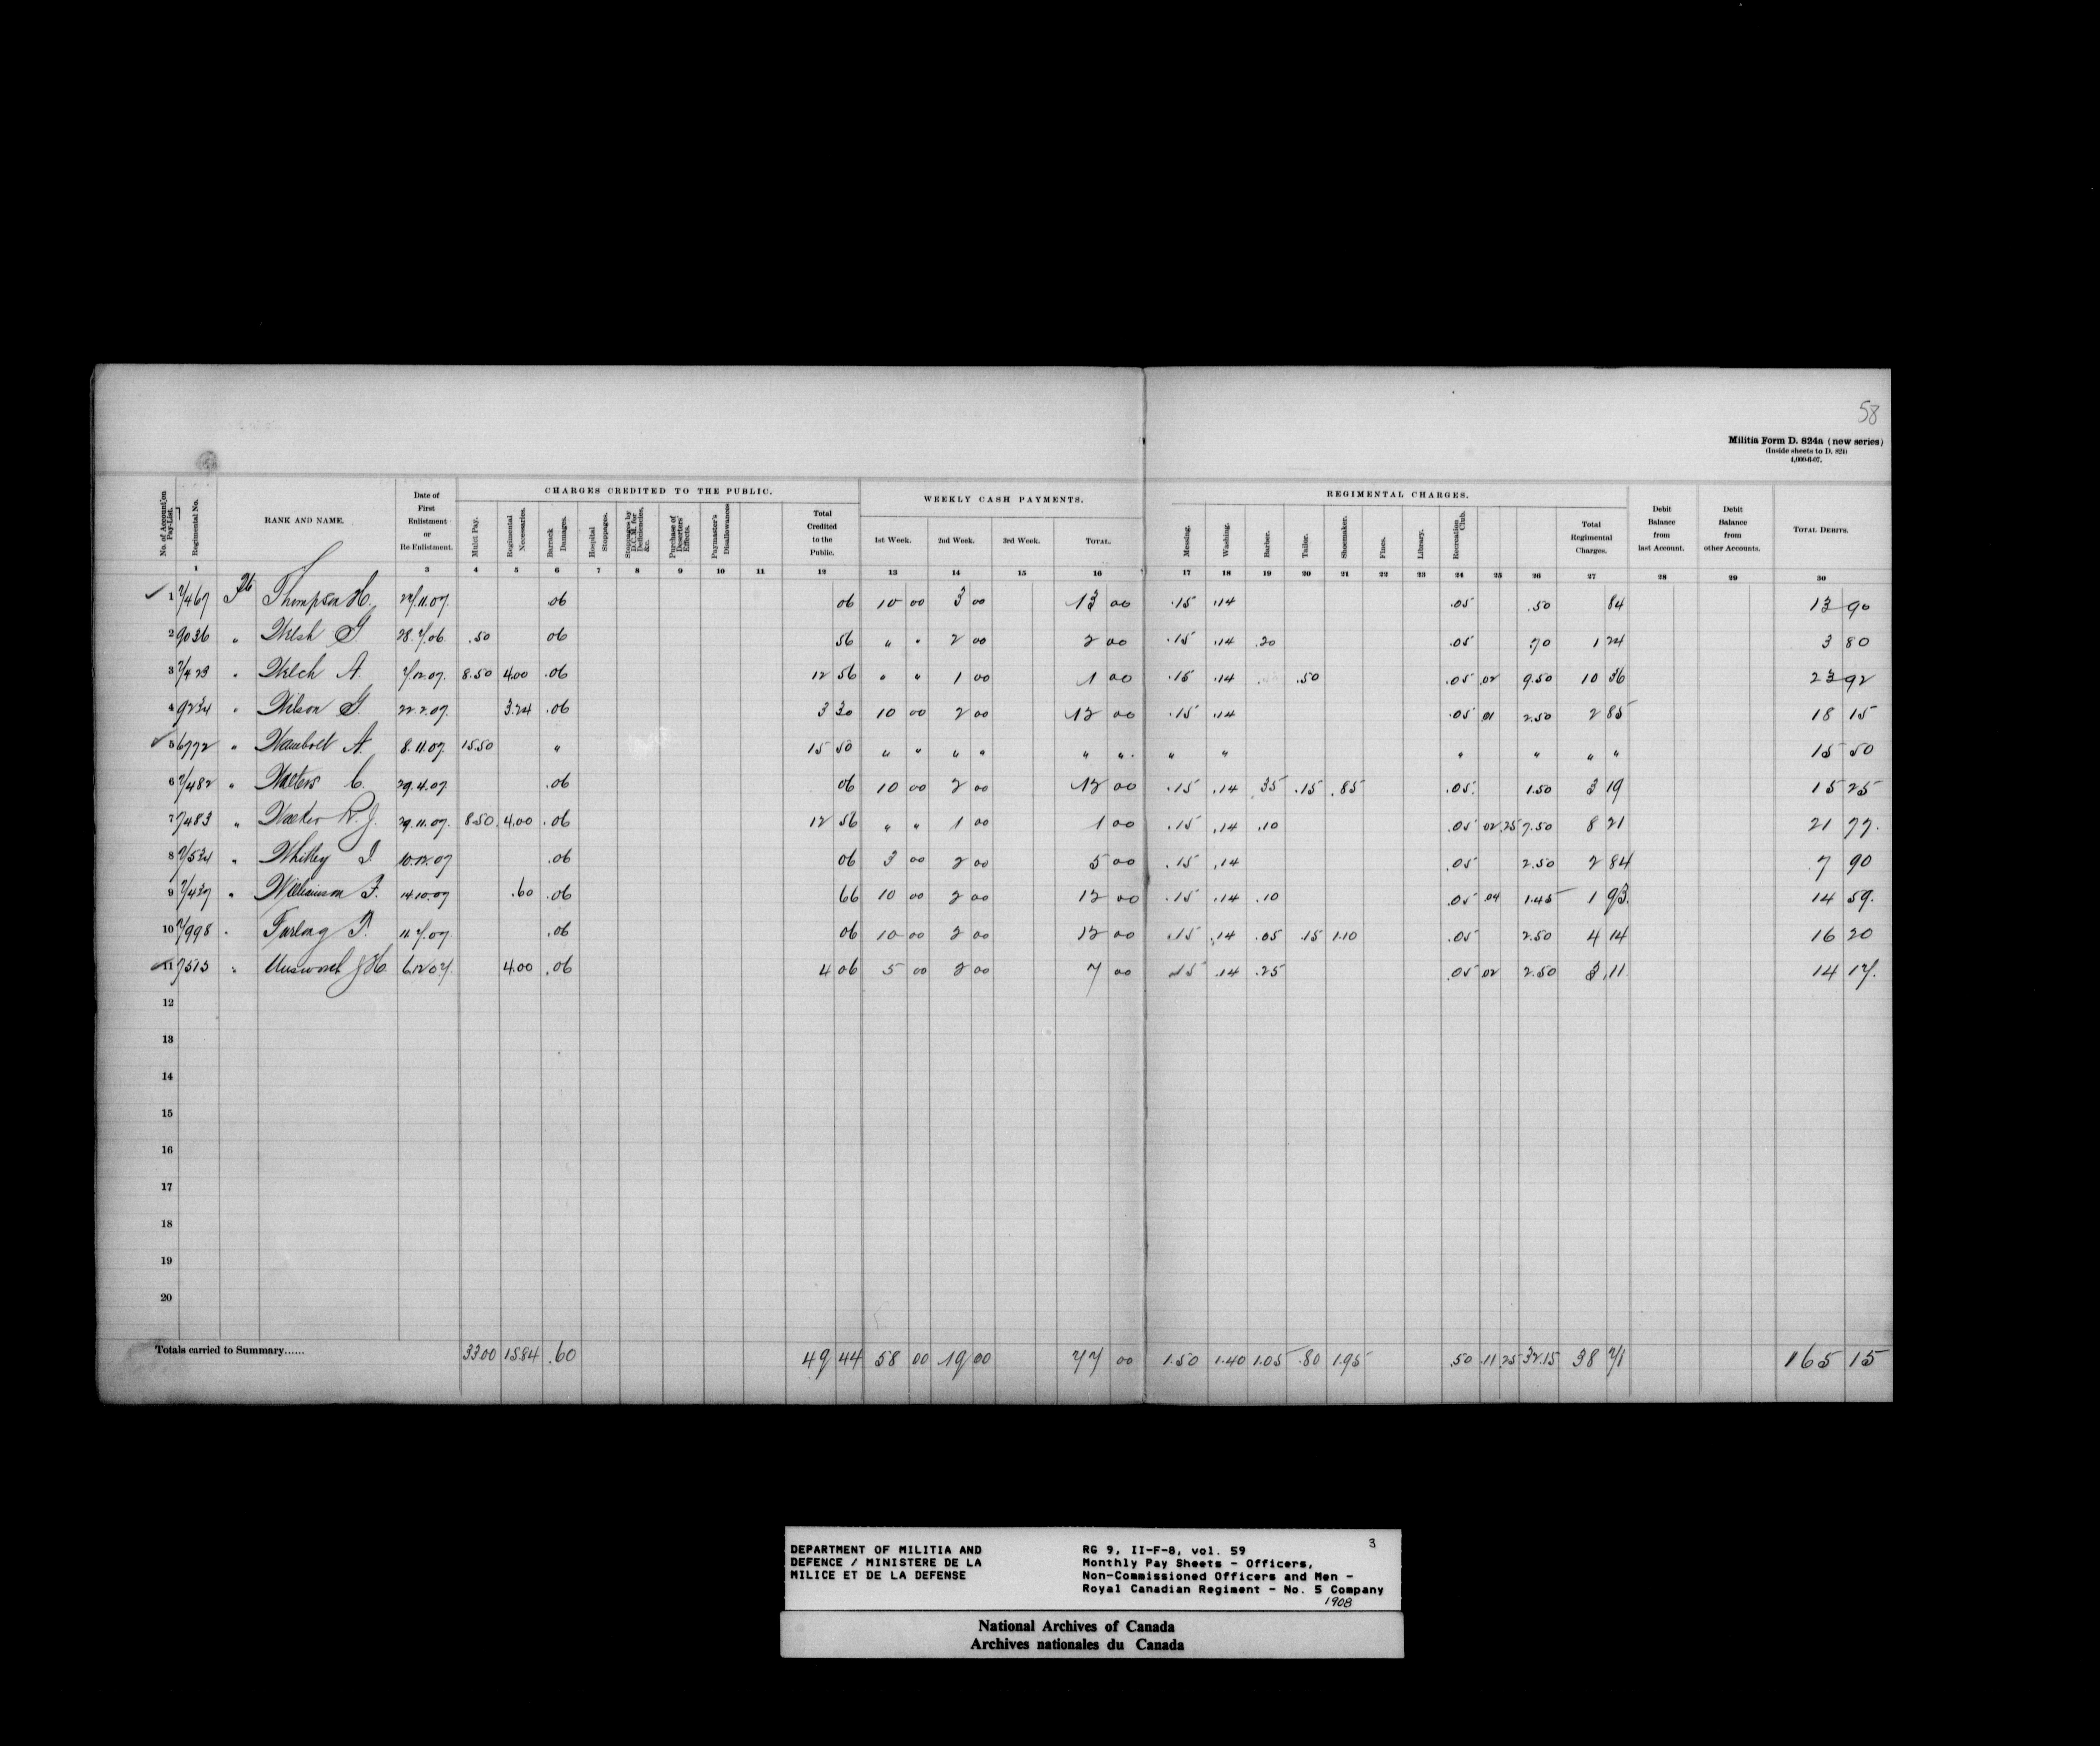 58
Militia Form D. 824a (new series)
(Inside sheets to D. 824)
4,000-6-07.
No. of Account on Pay-List. Regimental No. RANK AND NAME. Date of First Enlistment or Re-Enlistment. CHARGES CREDITED TO THE PUBLIC. WEEKLY CASH PAYMENTS. REGIMENTAL CHARGES. Debit Balance from last Account. Debit Balance from other Accounts. TOTAL DEBITS.
Mulct Pay. Regimental Necessaries. Barrack Damages. Hospital Stoppages. Stoppages by D.C.M. for Deficiencies, &c. Purchase of Deserters' Effects. Paymaster's Disallowances Total Credited to the Public. 1st Week. 2nd Week. 3rd Week. TOTAL. Messing. Washing. Barber. Tailor. Shoemaker. Fines. Library. Recreation Club. Total Regimental Charges.
1 3 4 5 6 7 8 9 10 11 12 13 14 15 16 17 18 19 20 21 22 23 24 25 26 27 28 29 30
1 7467 Pte Thompson H. 22/11.07. .06 06 10 00 3 00 13 00 .15 .14 .05 .50 84 13 90
2 9036 " Welsh G. 28.7.06. .50 06 56 " " 2 00 2 00 .15 .14 .20 .05 .70 1 24 3 80
3 7423 " Welch A. 7/12.07. 8.50 4.00 .06 12 56 " " 1 00 1 00 .15 .14 .50 .05 .02 9.50 10 36 23 92
4 9234 " Wilson G. 22.2.07. 3.24 .06 3 30 10 00 2 00 12 00 .15 .14 .05 .01 2.50 2 85 18 15
5 6772 " A. 8.11.07 15.50 " 15 50 " " " " " " " " " " " " 15 50
6 7482 " Walters C. 29.4.07 .06 06 10 00 2 00 12 00 .15 .14 .35 .15 .85 .05 1.50 3 19 15 25
7 7483 " R.J. 29.11.07. 8.50 4.00 .06 12 56 " " 1 00 1 00 .15 .14 .10 .05 02 .25 7.50 8 21 21 77.
8 7534 " Whitley 10.12.07 .06 06 3 00 2 00 5 00 .15 .14 .05 2.50 2 84 7 90
9 7437 " Williamson F. 14.10.07 .60 .06 66 10 00 2 00 12 00 .15 .14 .10 .05 .04 1.45 1 93. 14 59.
10 7998 " Furlong P. 11.7.07 .06 06 10 00 2 00 12 00 .15 .14 .05 .15 1.10 .05 2.50 4 14 16 20
11 7513 " J.H. 6.12.07. 4.00 .06 4 06 5 00 2 00 7 00 .15 .14 .25 .05 02 2.50 3 11 14 17.
12
13
14
15
16
17
18
19
20
Totals carried to Summary...... 33.00 15.84 .60 49 44 58 00 19 00 77 00 1.50 1.40 1.05 .80 1.95 .50 .11 .25 32.15 38 71 165 15
3
DEPARTMENT OF MILITIA AND
DEFENCE / MINISTERE DE LA
MILICE ET DE LA DEFENSE
RG 9, II-F-8, vol. 59
Monthly Pay Sheets - Officers,
Non-Commissioned Officers and Men -
Royal Canadian Regiment - No. 5 Company
1908
National Archives of Canada
Archives nationales du Canada